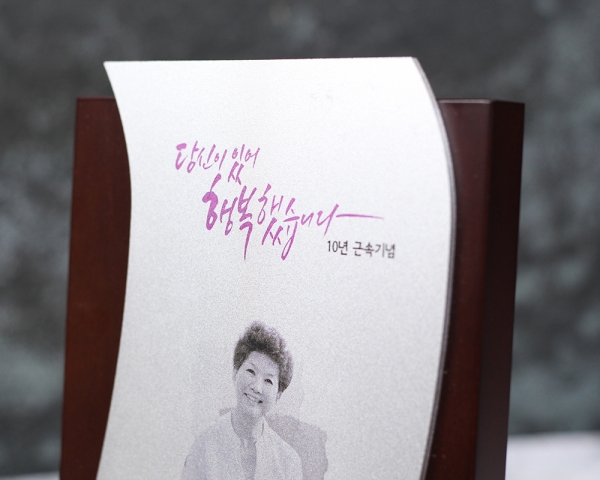 당신이 있어
행복했습니다
10년 근속기념